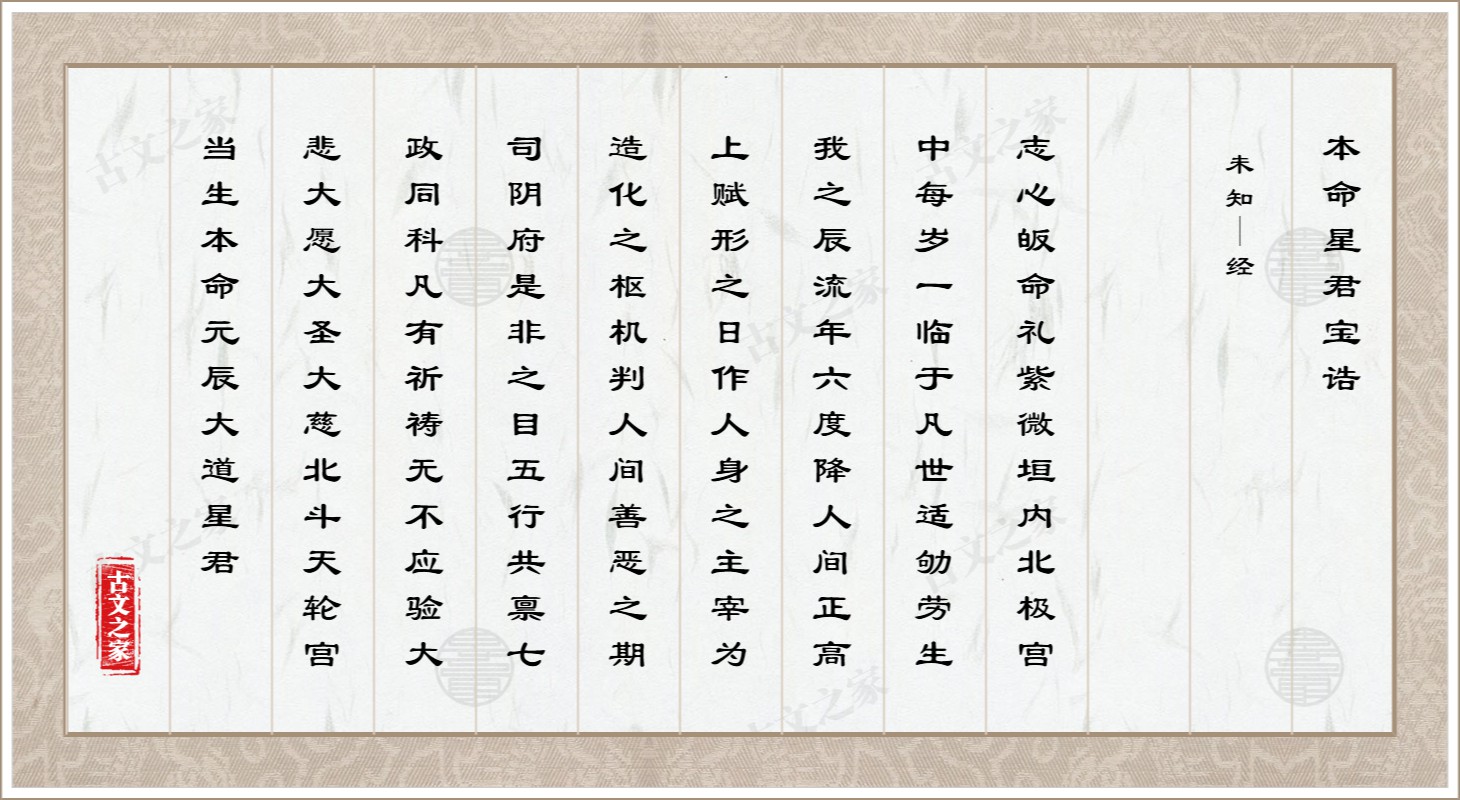 本命星君宝诰
未知—经
志心皈命礼紫微垣内北极宫
中每岁一临于凡世适劬劳生
我之辰流年六度降人间正高
上赋形之日作人身之主宰为
造化之枢机判人间善恶之期
司阴府是非之目五行共禀七
政同科凡有祈祷无不应验大
悲大愿大圣大慈北斗天轮宫
当生本命元辰大道星君
古文之家
古文之家
古文之家
古文之家
古文之家
古文之家
古文之家